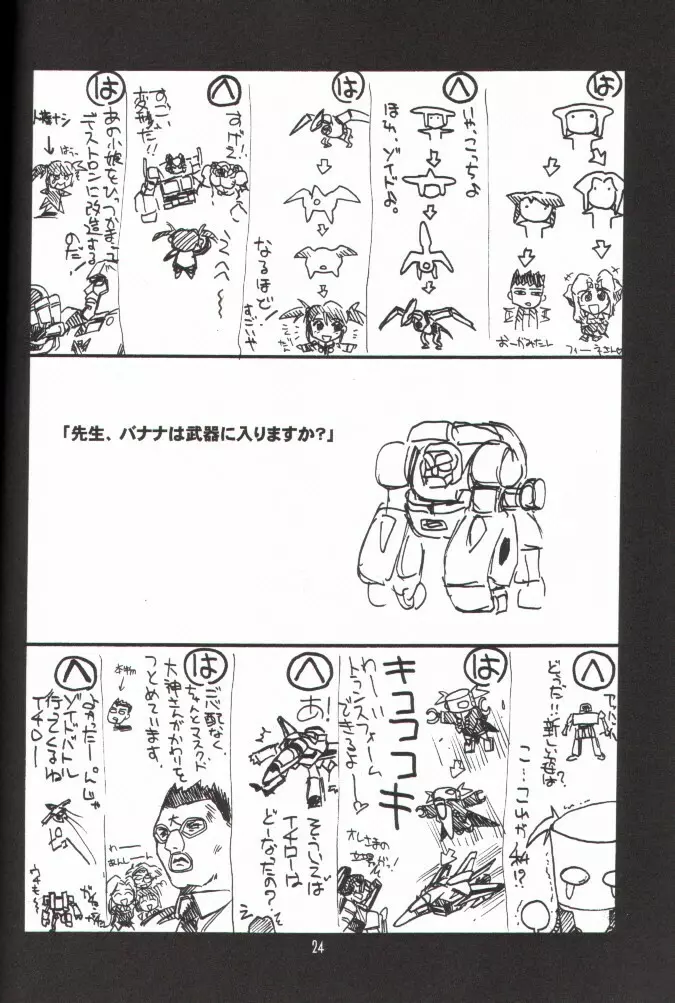 は
フィーネさん
おーがみたん
へ
いや、こっちよ
ほれ、ゾイドよ。
は
なるほど!
すごいや
へ
すげえ
すごい
変形だ!!
は
あの小娘をひっつかまえ
デストロンに改造する
のだ!
人権ナシ
「先生、バナナは武器に入りますか?」
へ
どうだ!!新しい姿は?
こ…これが私!?
は
キココココキ
わーいトランスフォーム
できるよー
オレさまの
立場がっ!
へ
あ!
そういえば
イチローは
どーなったの?
は
ご心配なく
ちゃんとマスクド
大神さんがかわりを
つとめています。
大
わーーん
へ
よかったーんじゃ
ゾイドバトル
行ってくるね
イチロー
24